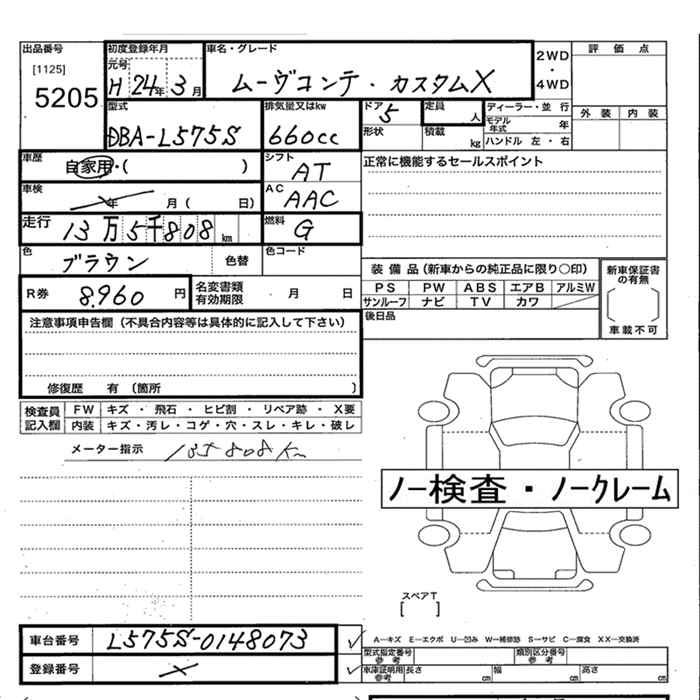 出品番号 初度登録年月 車名・グレード 2WD・4WD 評価点
[1125] 元号
5205 H 24年 3月 ムーヴコンテ・カスタムX
外装 内装
型式 排気量又はkw ドア 定員 ディーラー・並行
DBA-L575S 660cc 5 人 モデル年式 年
形状 積載 kg ハンドル 左・右
車歴 シフト 正常に機能するセールスポイント
自家用・( ) AT
車検 AC
年 月( 日) AAC
走行 燃料
13万5千808km G
色 色替 色コード
ブラウン
装備品(新車からの純正品に限り○印) 新車保証書の有無
R券 8.960円 名変書類有効期限 月 日
PS PW ABS エアB アルミW
サンルーフ ナビ TV カワ
後日品 車載不可
注意事項申告欄(不具合内容等は具体的に記入して下さい)
修復歴 有 (箇所 )
検査員記入欄 FW キズ・飛石・ヒビ割・リペア跡・X要
内装 キズ・汚レ・コゲ・穴・スレ・キレ・破レ
メーター指示 135808Km
ノー検査・ノークレーム
スペアT
[ ]
車台番号 L575S-0148073
A―キズ E―エクボ U―凹み W―補修跡 S―サビ C―腐食 XX―交換済
登録番号
型式指定番号参考 類別区分番号参考
車庫証明用参考 長さ cm 幅 cm 高さ cm